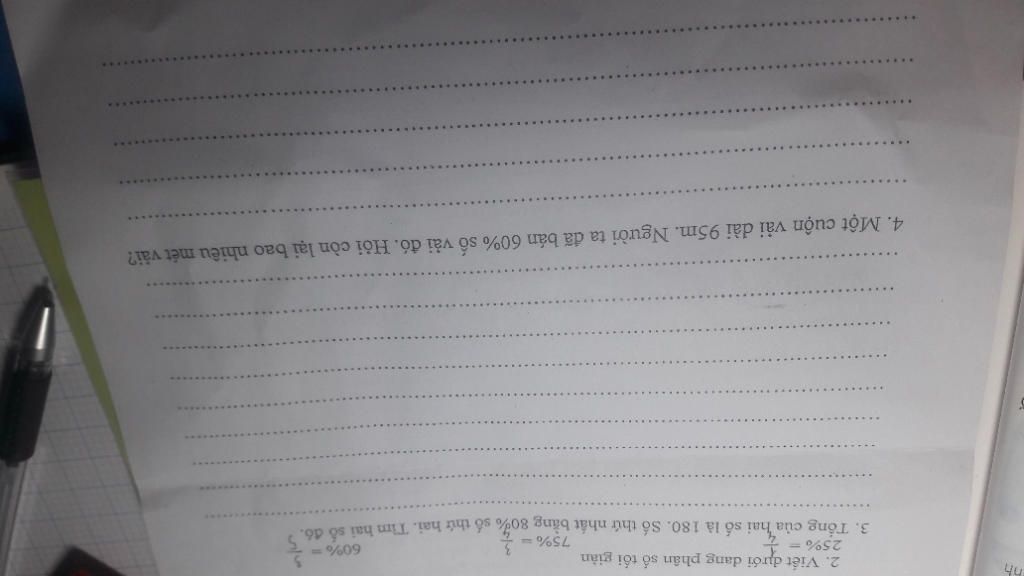 2. Viết dưới dạng phân số tối giản
25% = 1/4 75% = 3/4 60% = 3/5
3. Tổng của hai số là 180. Số thứ nhất bằng 80% số thứ hai. Tìm hai số đó.
4. Một cuộn vải dài 95m. Người ta đã bán 60% số vải đó. Hỏi còn lại bao nhiêu mét vải?